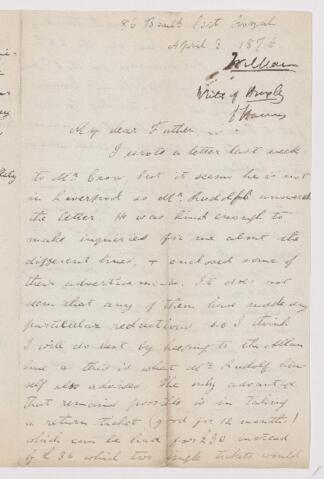 86 East
April 3 1876
William
Wife of
My dear Father
I wrote a letter last week
to Mr Crow, but it seems he is not
in Liverpool so Mr Rudolf answered
the letter. He was kind enough to
make inquiries for me about the
different lines, & enclosed some of
their advertisements. It does not
seem that any of them have made any
particular reductions, so I think
I will do best by keeping to the Allan
line as this is what Mr Rudolf him-
self also advises. The only advantage
that remains possible is in taking
a return ticket (good for 12 months)
which can be had for £30 instead
of £36 which two single tickets would